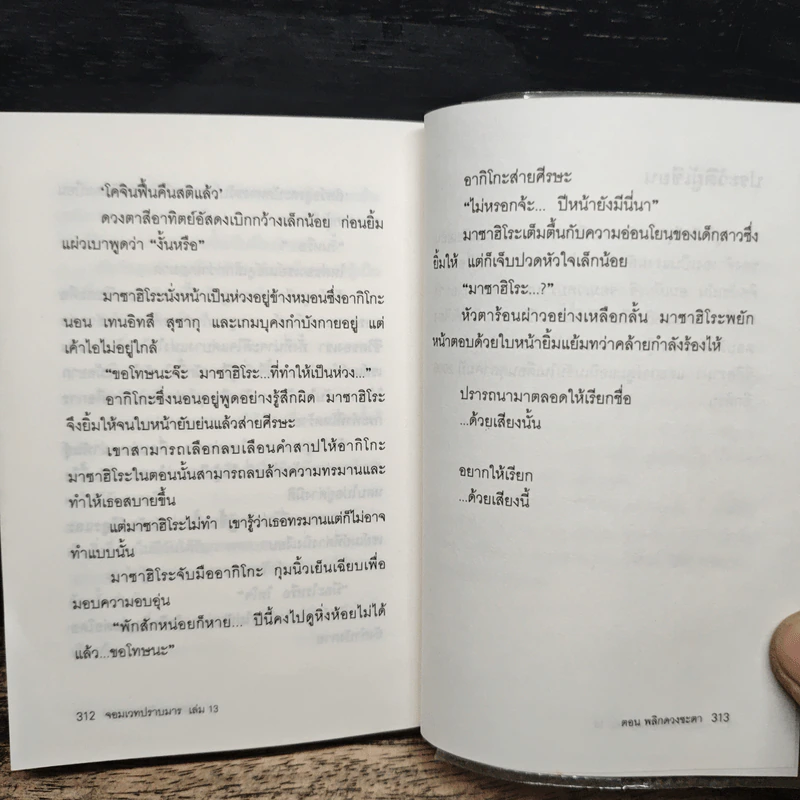 'โคจินฟื้นคืนสติแล้ว'
ดวงตาสีอาทิตย์อัสดงเบิกกว้างเล็กน้อย ก่อนยิ้ม
แผ่วเบาพูดว่า “งั้นหรือ”
มาซาฮิโระนั่งหน้าเป็นห่วงอยู่ข้างหมอนซึ่งอากิโกะ
นอน เทนอิทสึ สุซากุ และเกมบุคงกำบังกายอยู่ แต่
เค้าไอไม่อยู่ใกล้
“ขอโทษนะจ๊ะ มาซาฮิโระ...ที่ทำให้เป็นห่วง...”
อากิโกะซึ่งนอนอยู่พูดอย่างรู้สึกผิด มาซาฮิโระ
จึงยิ้มให้จนใบหน้ายับย่นแล้วส่ายศีรษะ
เขาสามารถเลือกลบเลือนคำสาปให้อากิโกะ
มาซาฮิโระในตอนนั้นสามารถลบล้างความทรมานและ
ทำให้เธอสบายขึ้น
แต่มาซาฮิโระไม่ทำ เขารู้ว่าเธอทรมานแต่ก็ไม่อาจ
ทำแบบนั้น
มาซาฮิโระจับมืออากิโกะ กุมนิ้วเย็นเฉียบเพื่อ
มอบความอบอุ่น
“พักสักหน่อยก็หาย... ปีนี้คงไปดูหิ่งห้อยไม่ได้
แล้ว...ขอโทษนะ”
312 จอมเวทปราบมาร เล่ม 13
อากิโกะส่ายศีรษะ
“ไม่หรอกจ้ะ... ปีหน้ายังมีนี่นา”
มาซาฮิโระเต็มตื้นกับความอ่อนโยนของเด็กสาวซึ่ง
ยิ้มให้ แต่ก็เจ็บปวดหัวใจเล็กน้อย
“มาซาฮิโระ...?”
หัวตาร้อนผ่าวอย่างเหลือกลั้น มาซาฮิโระพยัก
หน้าตอบด้วยใบหน้ายิ้มแย้มทว่าคล้ายกำลังร้องไห้
ปรารถนามาตลอดให้เรียกชื่อ
...ด้วยเสียงนั้น
อยากให้เรียก
...ด้วยเสียงนี้
ตอน พลิกดวงชะตา 313